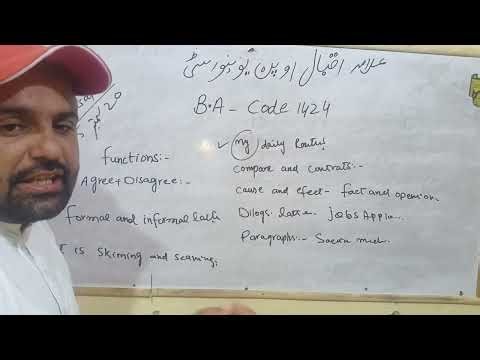 علامہ اقبال اوپن یونیورسٹی
B.A - Code 1424
functions:-
Agree + Disagree:-
formal and informal
is Skiming and scaning.
✓ my daily Routen
Compare and contrats:-
cause and efect - fact and openion.
Dilogs. latter. Jobs Applia..
Paragraphs:-